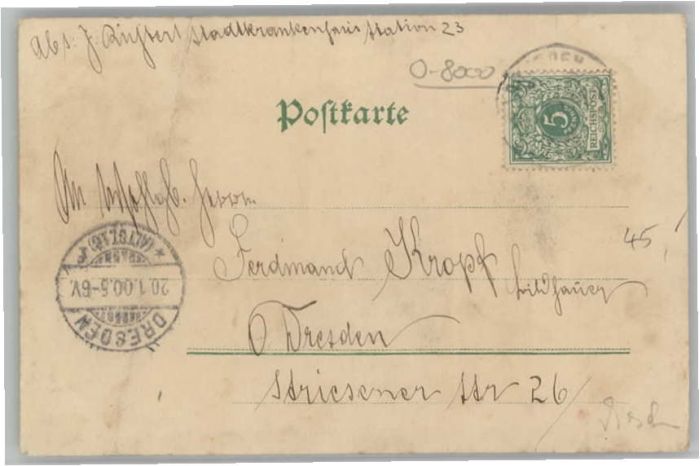 Abs: J. Richtert Stadtkrankenhaus Station 23
0-8000
Postkarte
5
REICHSPOST
An Herrn
Ferdinand Kropf Bildhauer
45,
Dresden
Striesener Str 26/
DRESDEN
(ALTST.) 16
20.1.00.5-6V.